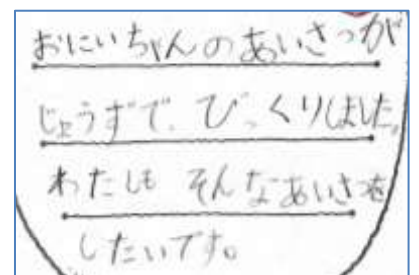 おにいちゃんのあいさつが
じょうずで、びっくりしました。
わたしも そんなあいさつを
したいです。